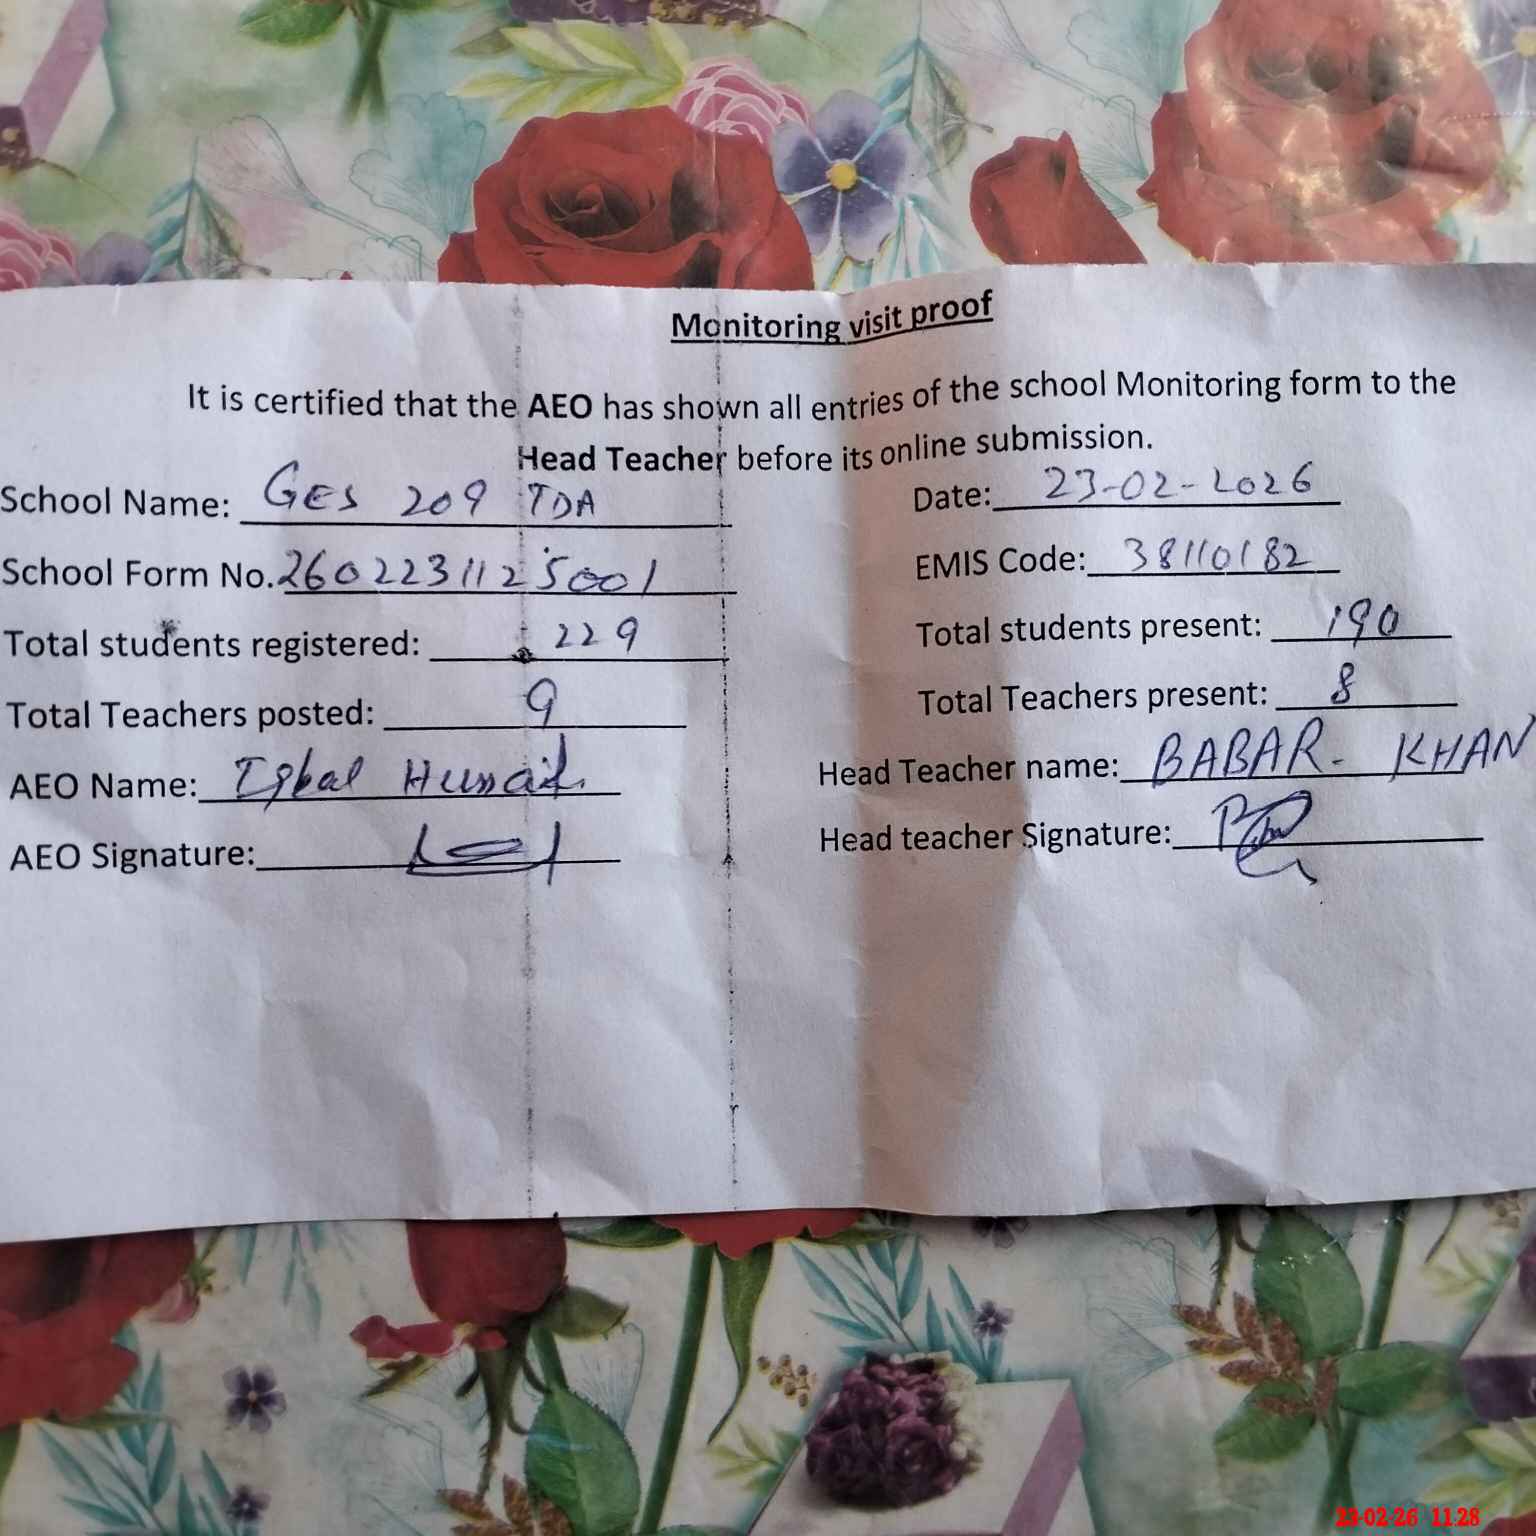 Monitoring visit proof
It is certified that the AEO has shown all entries of the school Monitoring form to the
Head Teacher before its online submission.
School Name: GES 209 TDA Date: 23-02-2026
School Form No. 2602231125001 EMIS Code: 38110182
Total students registered: 229 Total students present: 190
Total Teachers posted: 9 Total Teachers present: 8
AEO Name: Iqbal Hussain Head Teacher name: BABAR. KHAN
AEO Signature: Head teacher Signature:
23-02-26 11.28